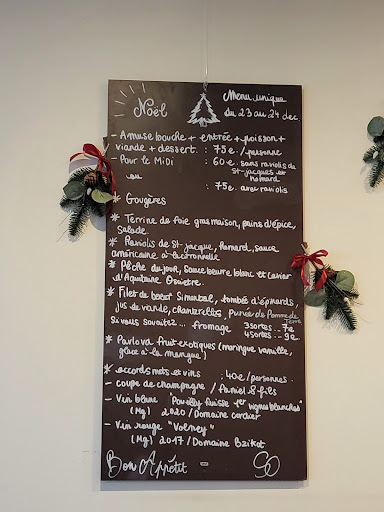 Noël
Menu unique
du 23 au 24 dec
- Amuse bouche + entrée + poisson +
viande + dessert : 75e / personne
- Pour le MiDi : 60e. sans raviolis de
St-jacques et
homard
ou : 75e. avec raviolis
* Gougères
* Terrine de foie gras maison, pains d'épice,
salade
* Raviolis de St-jacque, Homard, sauce
américaine à la citronnelle
* Pêche du jour, Sauce beurre blanc et Caviar
d'Aquitaine Osietre.
* Filet de bœuf Simmental, tombée d'épinards,
jus de viande, chanterelles, Purée de Pomme de
Terre
Si vous souaitez ... fromage 3sortes .. 7e
4sortes .. 9e
* Pavlova fruit exotiques (meringue vanille,
glace à la mangue)
* accords mets et vins : 40e / personnes.
- coupe de champagne / Faniel & fils
- Vin blanc "Pouilly fuissé 1er vignes blanches"
(Mg) 2020 / Domaine Cordier
- Vin rouge "Volnay"
(Mg) 2017 / Domaine Bzikot
Bon Appétit